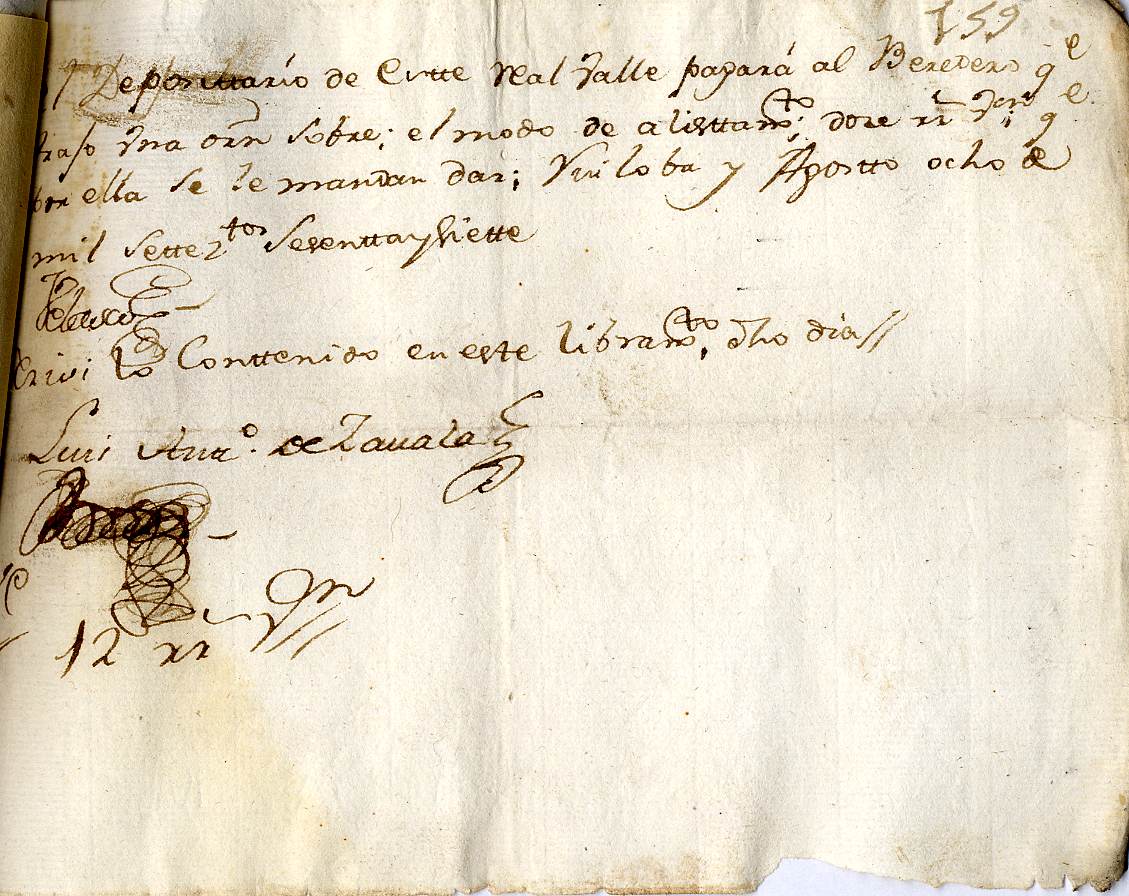 159
Deposittario de Estte Real Valle pagará al Beredero q.e
traso vna orn sobre; el modo de alisttam.to; doze rr.s v.on; q.e
por ella se le mandan dar; Viiloba y Agostto ocho de
mil sette z.tos Setentta y siette
Rivi Lo Conttenido en este libram.to, dho dia//
Luis Antt.o de Zauala
12 rr.s Vn//